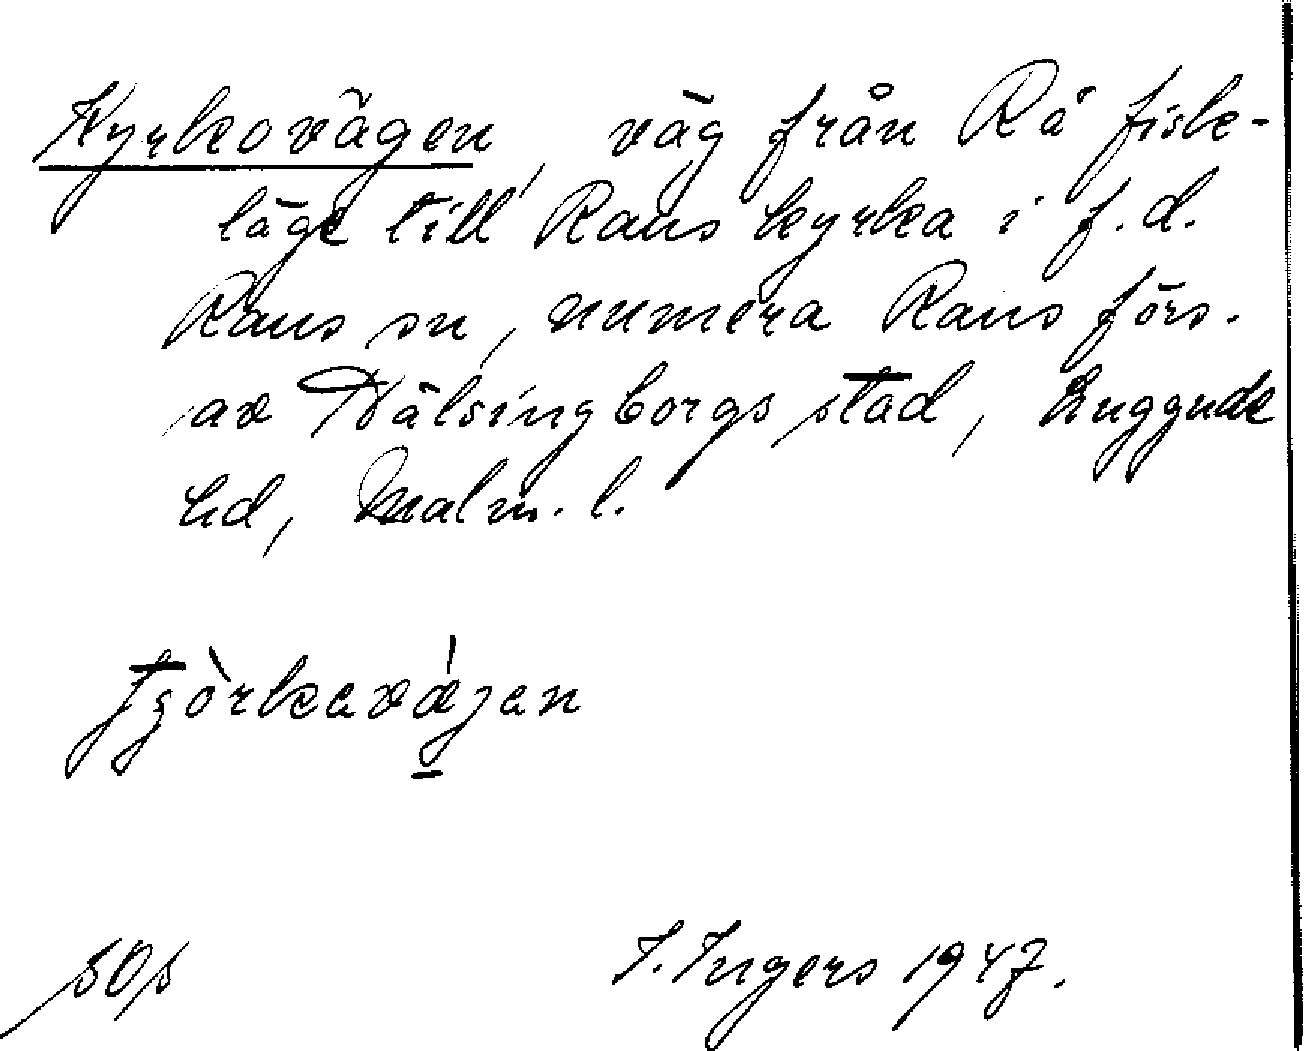 Kyrkovägen, väg från Rå fiske-
läge till Raus kyrka i f.d.
Raus sn, numera Raus förs.
av Hälsingborgs stad, Luggude
hd, Malm. l.
I. Ingers 1947.